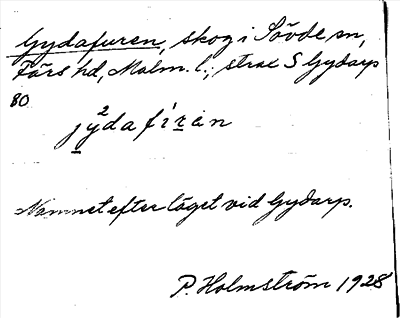 Gydafuren, skog i Sövde sn,
Färs hd, Malm. l.; strax S Gydarp
80
jy²dafíræn
Namnet efter läget vid Gydarp.
P. Holmström 1928